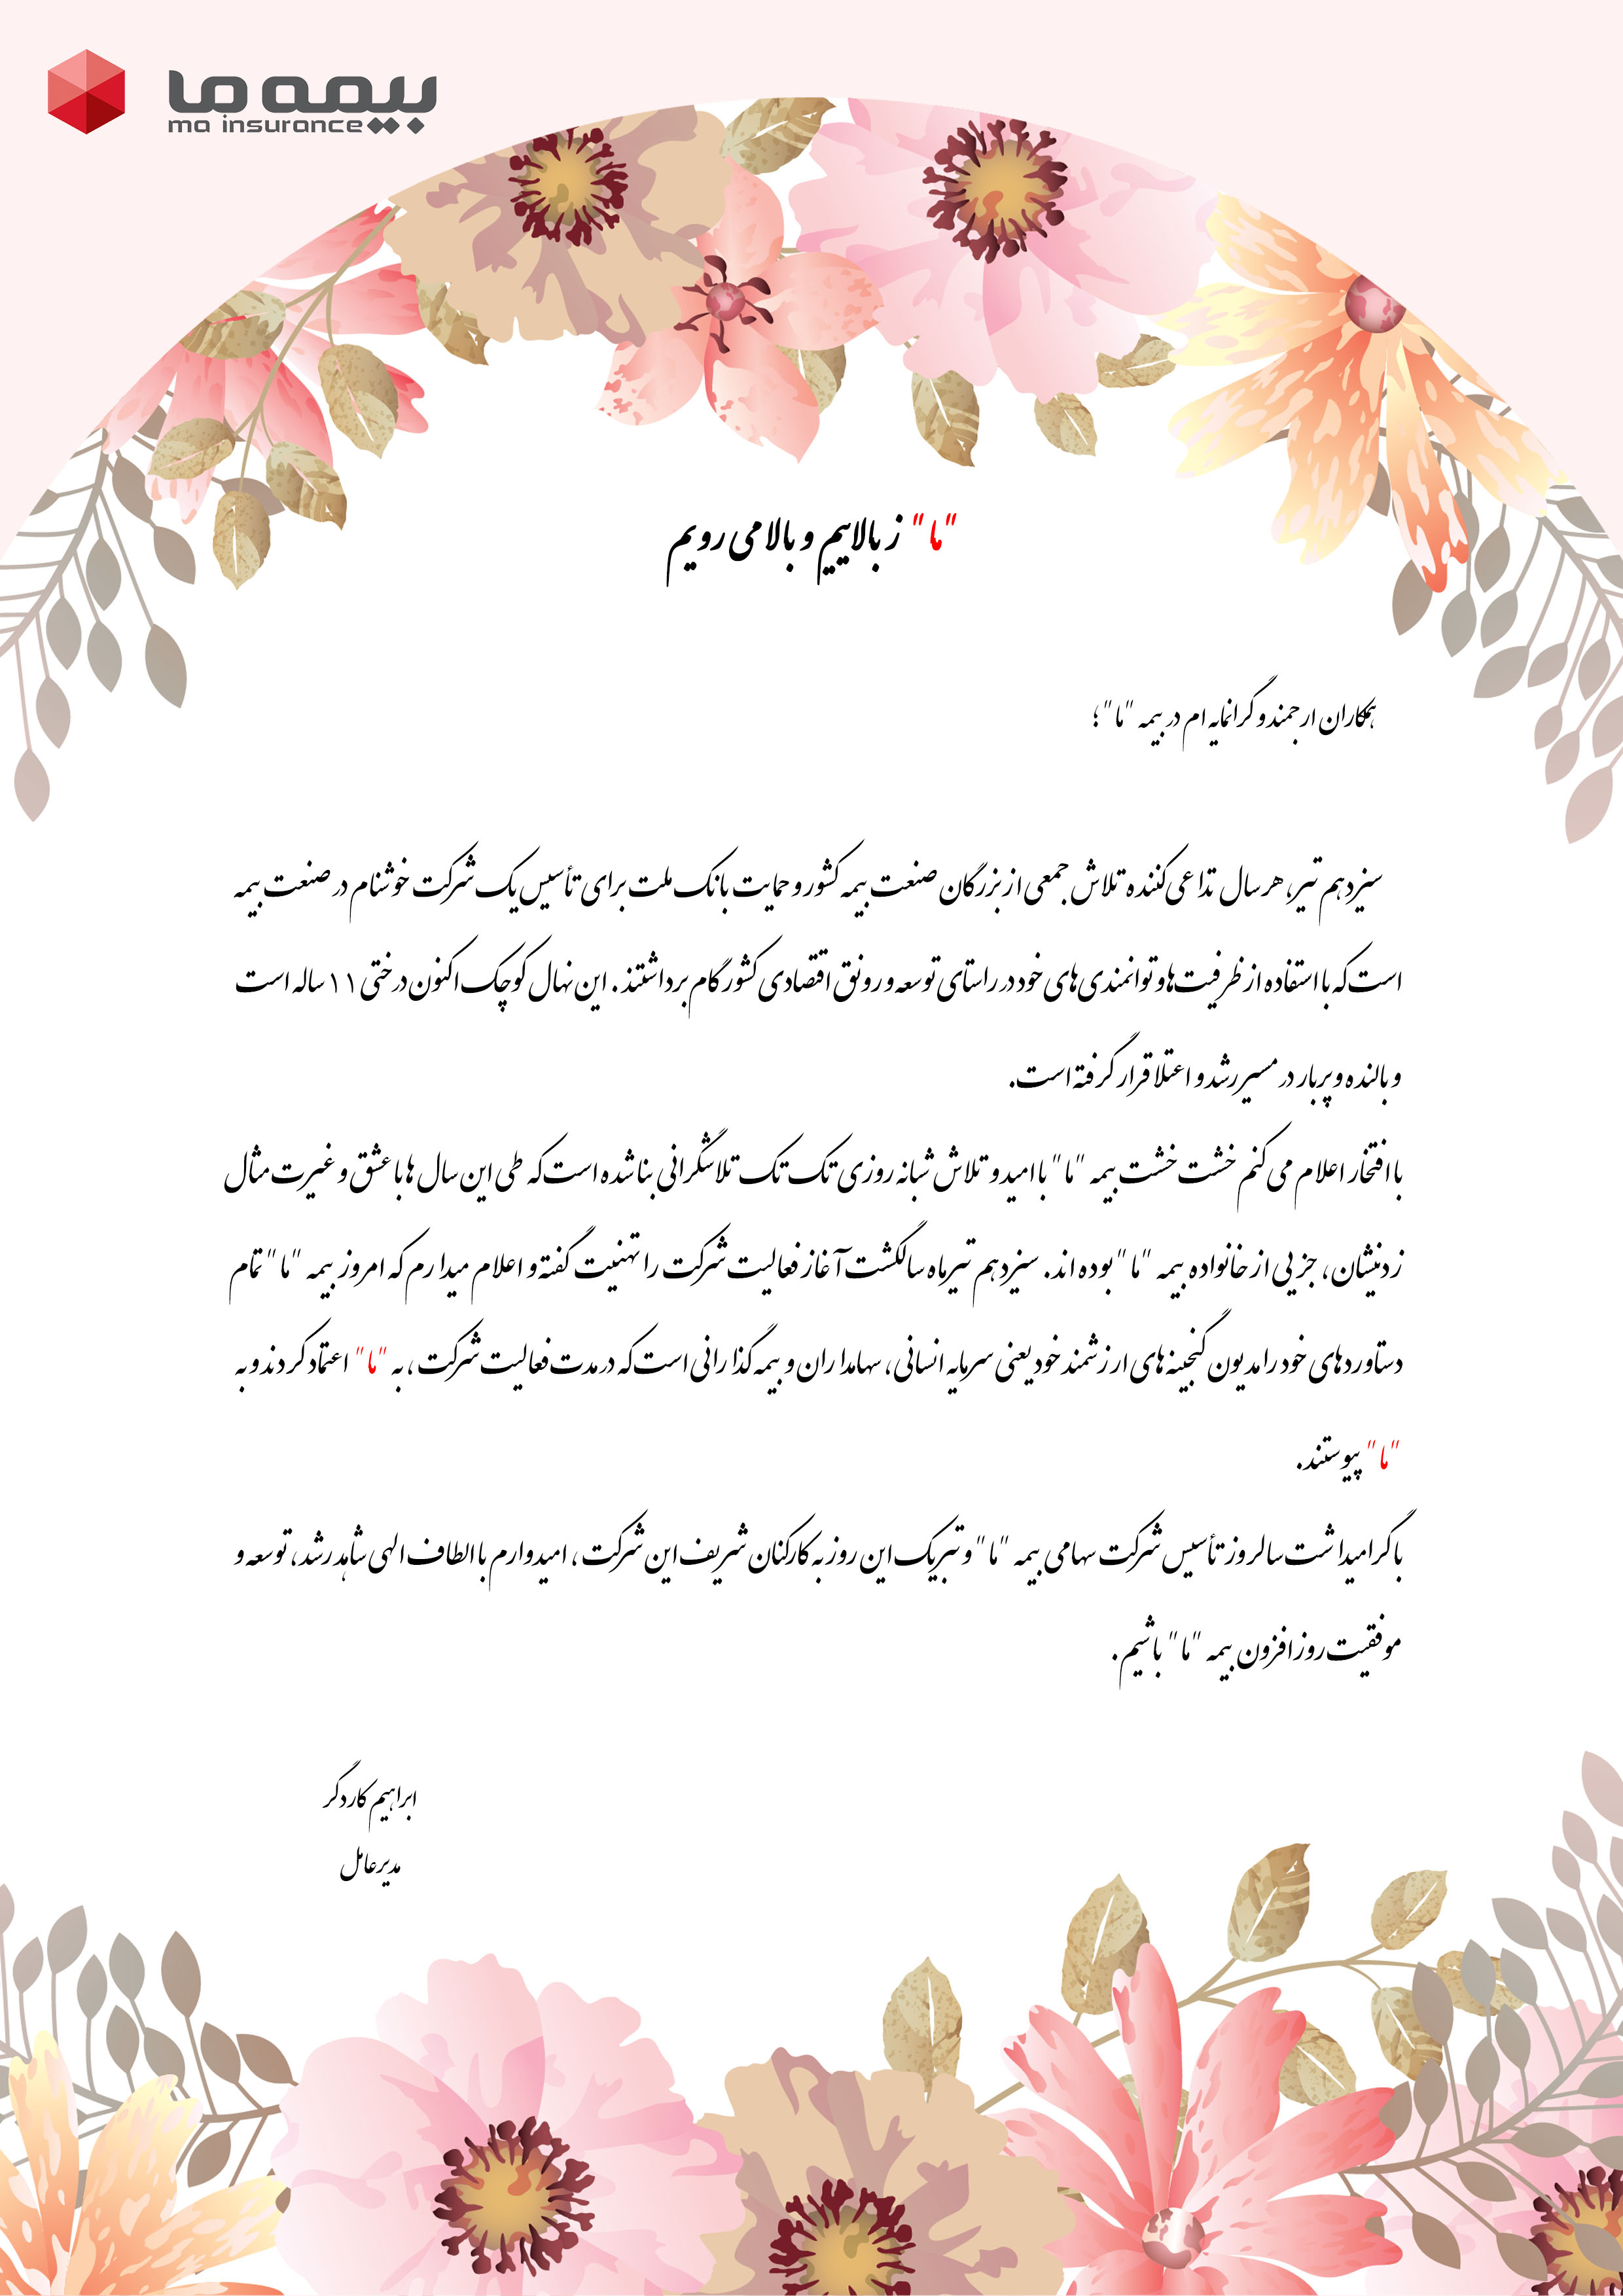 بیمه ما
ma insurance
"ما" ز بالاییم و بالا می رویم
همکاران ارجمند و گرانمایه ام در بیمه "ما"؛
سیزدهم تیر، هر سال تداعی کننده تلاش جمعی از بزرگان صنعت بیمه کشور و حمایت بانک ملت برای تأسیس یک شرکت خوشنام در صنعت بیمه
است که با استفاده از ظرفیت ها و توانمندی های خود در راستای توسعه و رونق اقتصادی کشور گام برداشتند. این نهال کوچک اکنون درختی ۱۱ ساله است
و بالنده و پربار در مسیر رشد و اعتلا قرار گرفته است.
با افتخار اعلام می کنم خشت خشت بیمه "ما" با امید و تلاش شبانه روزی تک تک تلاشگرانی بنا شده است که طی این سال ها با عشق و غیرت مثال
زدنیشان، جزیی از خانواده بیمه "ما" بوده اند. سیزدهم تیرماه سالگشت آغاز فعالیت شرکت را تهنیت گفته و اعلام میدارم که امروز بیمه "ما" تمام
دستاوردهای خود را مدیون گنجینه های ارزشمند خود یعنی سرمایه انسانی، سهامداران و بیمه گذارانی است که در مدت فعالیت شرکت، به "ما" اعتماد کردند و به
"ما" پیوستند.
با گرامیداشت سالروز تأسیس شرکت سهامی بیمه "ما" و تبریک این روز به کارکنان شریف این شرکت، امیدوارم با الطاف الهی شاهد رشد، توسعه و
موفقیت روزافزون بیمه "ما" باشیم.
ابراهیم کاردگر
مدیرعامل